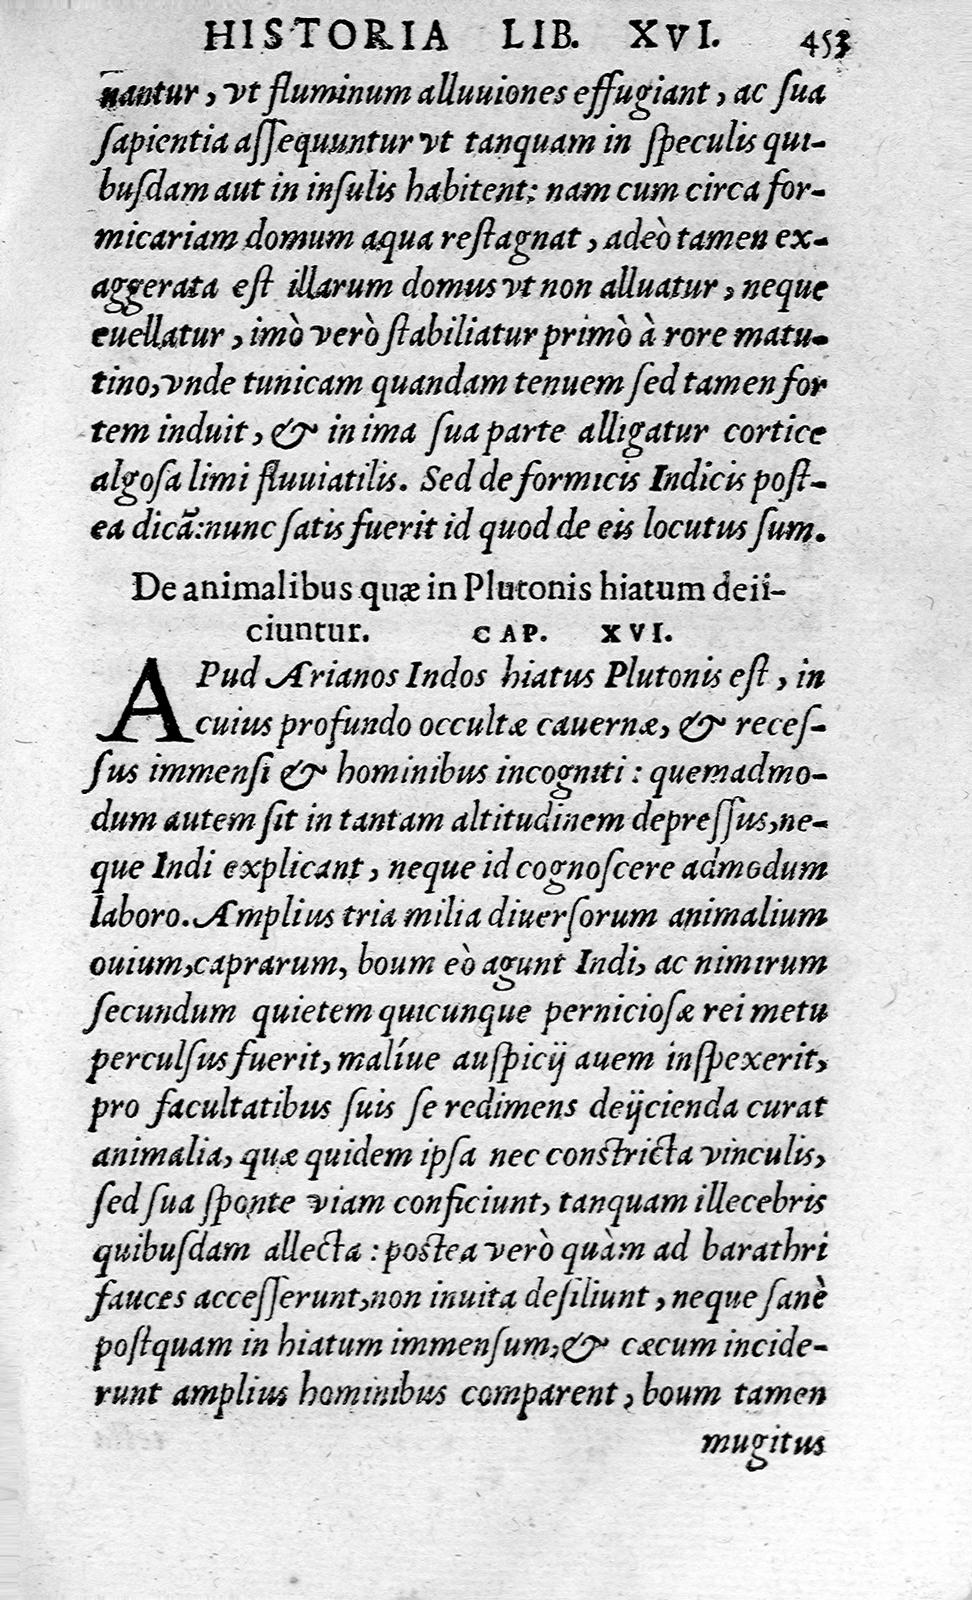 HISTORIA LIB. XVI. 453
nantur, vt fluminum alluuiones effugiant, ac ſua
ſapientia aſſequuntur vt tanquam in ſpeculis qui-
buſdam aut in inſulis habitent: nam cum circa for-
micariam domum aqua reſtagnat, adeò tamen ex-
aggerata eſt illarum domus vt non alluatur, neque
euellatur, imò verò ſtabiliatur primò à rore matu-
tino, vnde tunicam quandam tenuem ſed tamen for
tem induit, & in ima ſua parte alligatur cortice
algoſa limi fluuiatilis. Sed de formicis Indicis poſt-
ea dicā: nunc ſatis fuerit id quod de eis locutus ſum.
De animalibus quæ in Plutonis hiatum deii-
ciuntur. CAP. XVI.
APud Arianos Indos hiatus Plutonis eſt, in
cuius profundo occultæ cauernæ, & receſ-
ſus immenſi & hominibus incogniti: quemadmo-
dum autem ſit in tantam altitudinem depreſſus, ne-
que Indi explicant, neque id cognoſcere admodum
laboro. Amplius tria milia diuerſorum animalium
ouium, caprarum, boum eò agunt Indi, ac nimirum
ſecundum quietem quicunque pernicioſæ rei metu
perculſus fuerit, malíue auſpicij auem inſpexerit,
pro facultatibus ſuis ſe redimens deijcienda curat
animalia, quæ quidem ipſa nec conſtricta vinculis,
ſed ſua ſponte viam conficiunt, tanquam illecebris
quibuſdam allecta: poſtea verò quàm ad barathri
fauces acceſſerunt, non inuita deſiliunt, neque ſanè
poſtquam in hiatum immenſum, & cæcum incide-
runt amplius hominibus comparent, boum tamen
mugitus